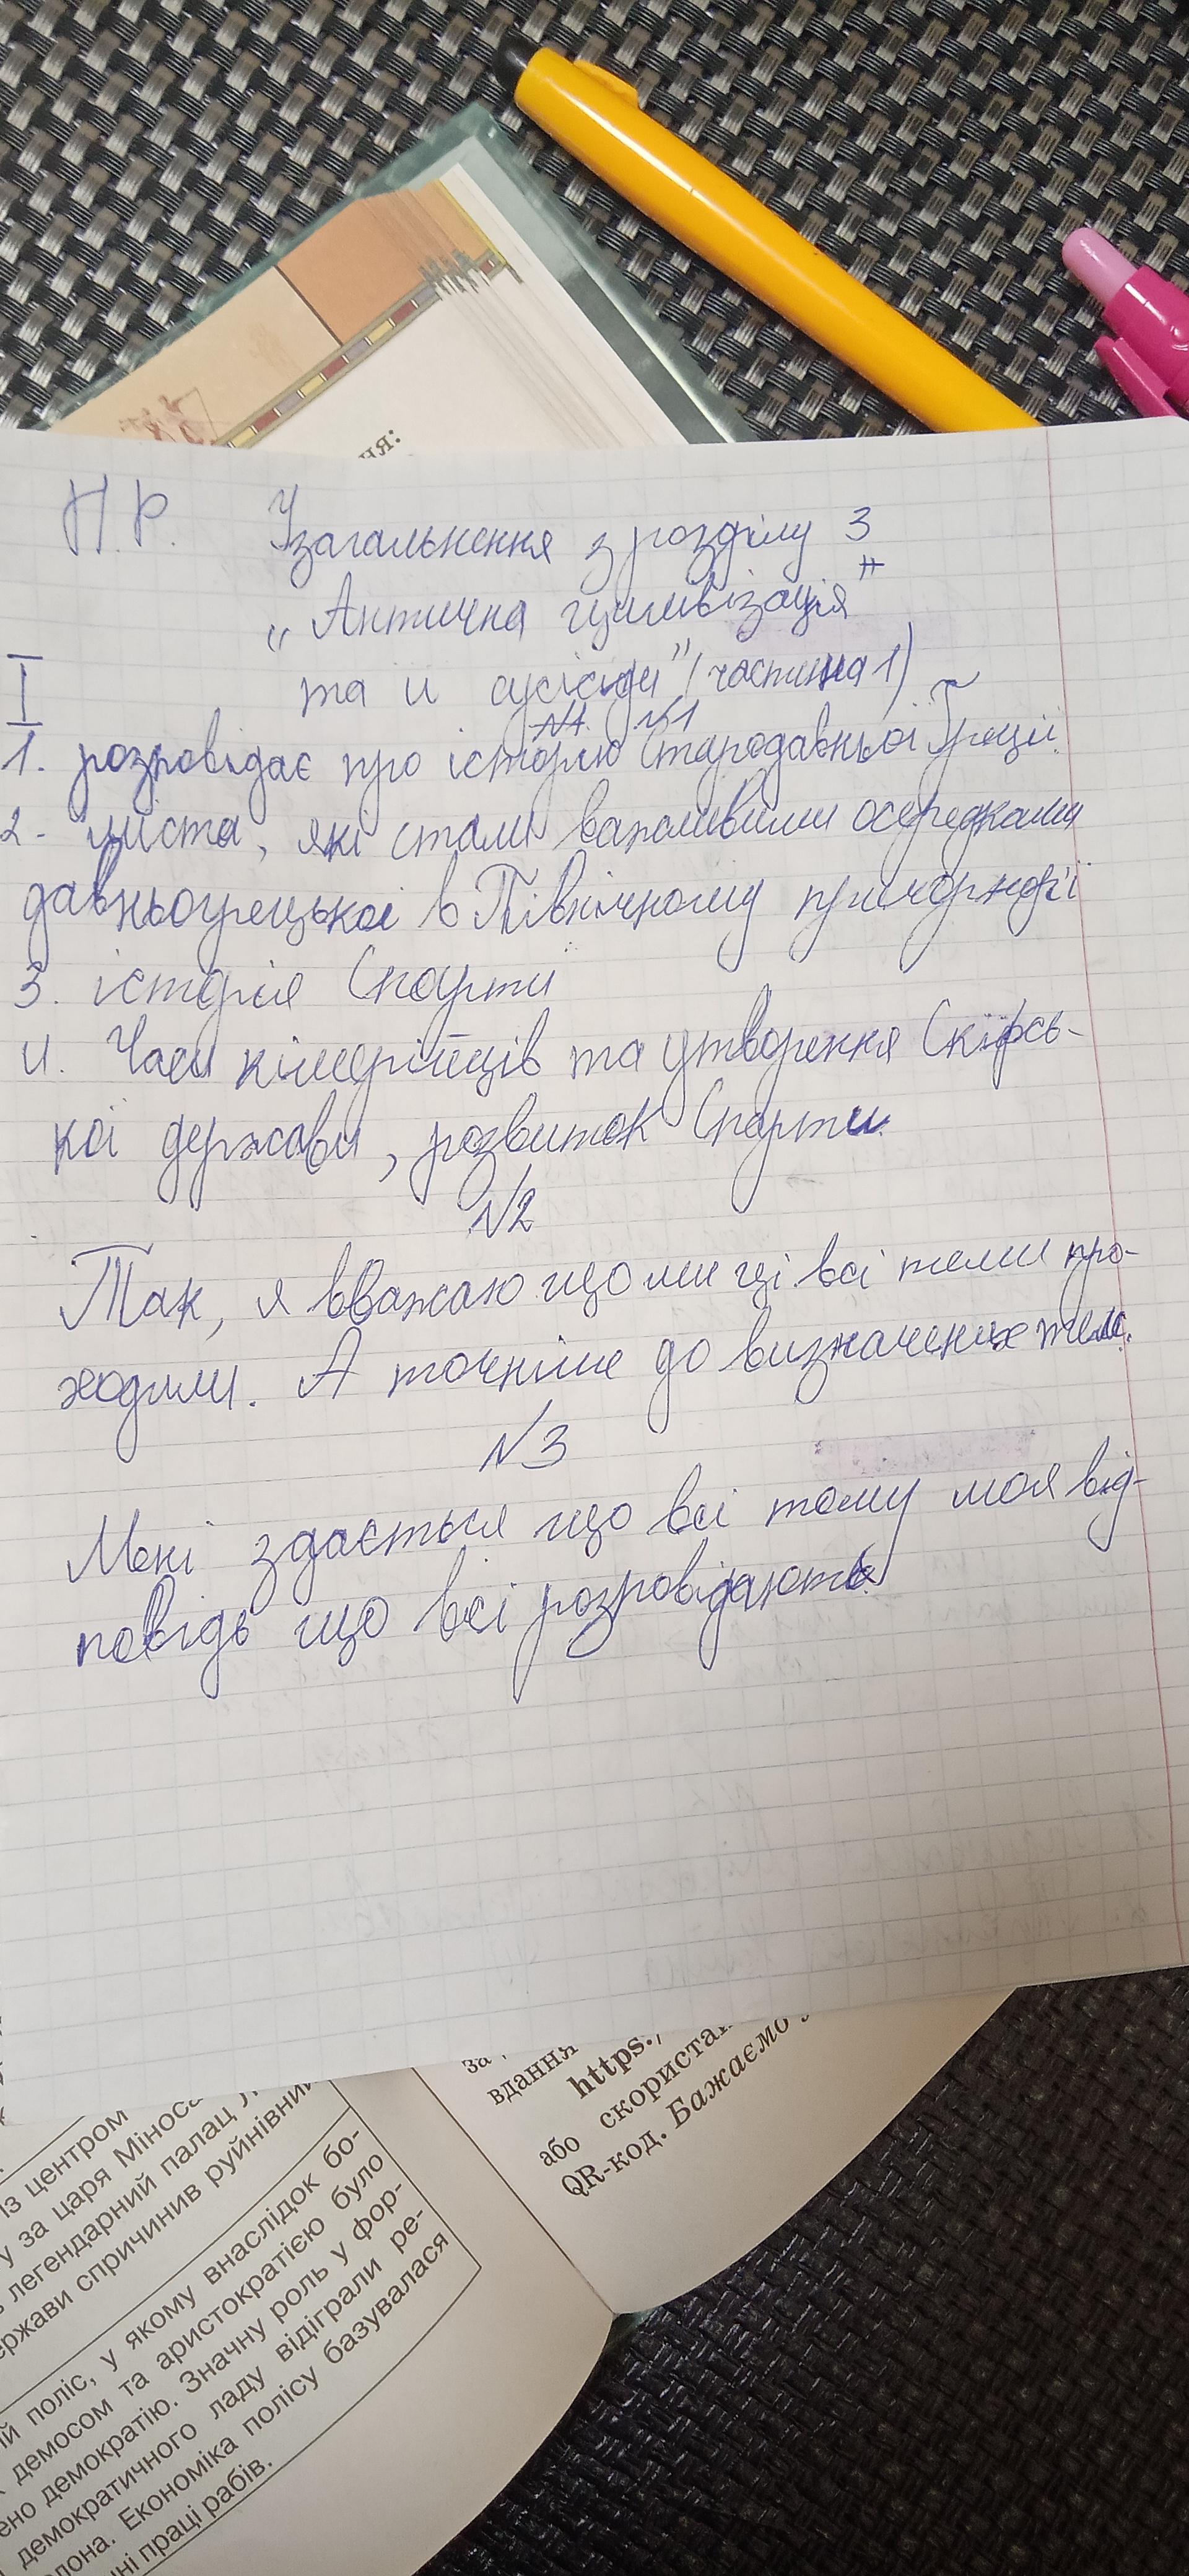 ня:
Н.Р. Узагальнення з розділу 3
"Антична цивівізація"
та її сусіди" (частина 1)
I
№1
1. розровідає про історію Стародавньої Греції.
2. міста, які стали важливими осередками
давньогрецької в Північному причорномор'ї
3. історія Спарти
4. Часи кімерійців та утворення Скіфсь-
кої держави, розвиток Спарти.
№2
Так, я вважаю що ми ці всі теми про-
ходили. А точніше до визначених тем.
№3
Мені здається що всі тому моя від-
повідь що всі розровідають.
за
вдання
https:/
скористат
або
QR-код. Бажаємо
із центром
у за царя Міноса
легендарний палац
ержави спричинив руйнівний
ий поліс, у якому внаслідок бо-
демосом та аристократією було
ено демократію. Значну роль у фор-
демократичного ладу відіграли ре-
лона. Економіка полісу базувалася
ні праці рабів.